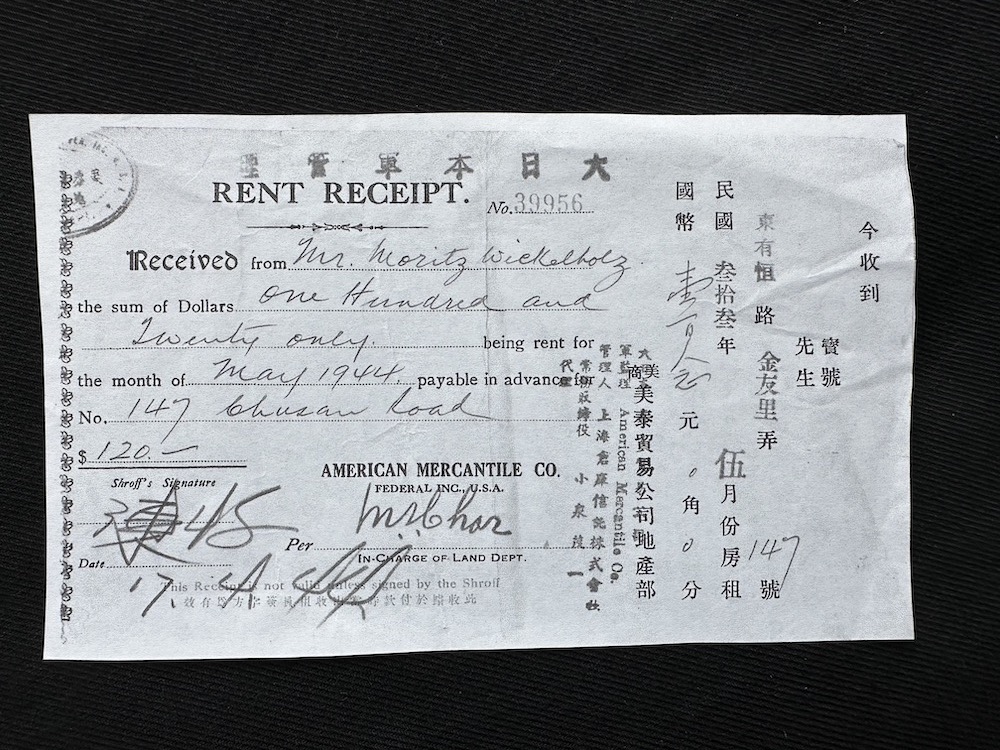 大日本軍管理
RENT RECEIPT.
No. 39956
Received from Mr. Moritz Wickelholz.
the sum of Dollars One Hundred and
Twenty only. being rent for
the month of May 1944. payable in advance for
No. 147 Chusan Road
$ 120.—
Shroff's Signature
AMERICAN MERCANTILE CO.
FEDERAL INC., U.S.A.
Per
IN-CHARGE OF LAND DEPT.
Date 17
This Receipt is not valid unless signed by the Shroff
今收到
寶號
先生
東有恒路 金友里弄 147 號
民國叁拾叁年 伍月份房租
國幣 元 0 角 0 分
美商美泰貿易公司地產部
American Mercantile Co.
軍監理
管理人 上海倉庫信託株式會社
常務取締役 小泉茂一
代理